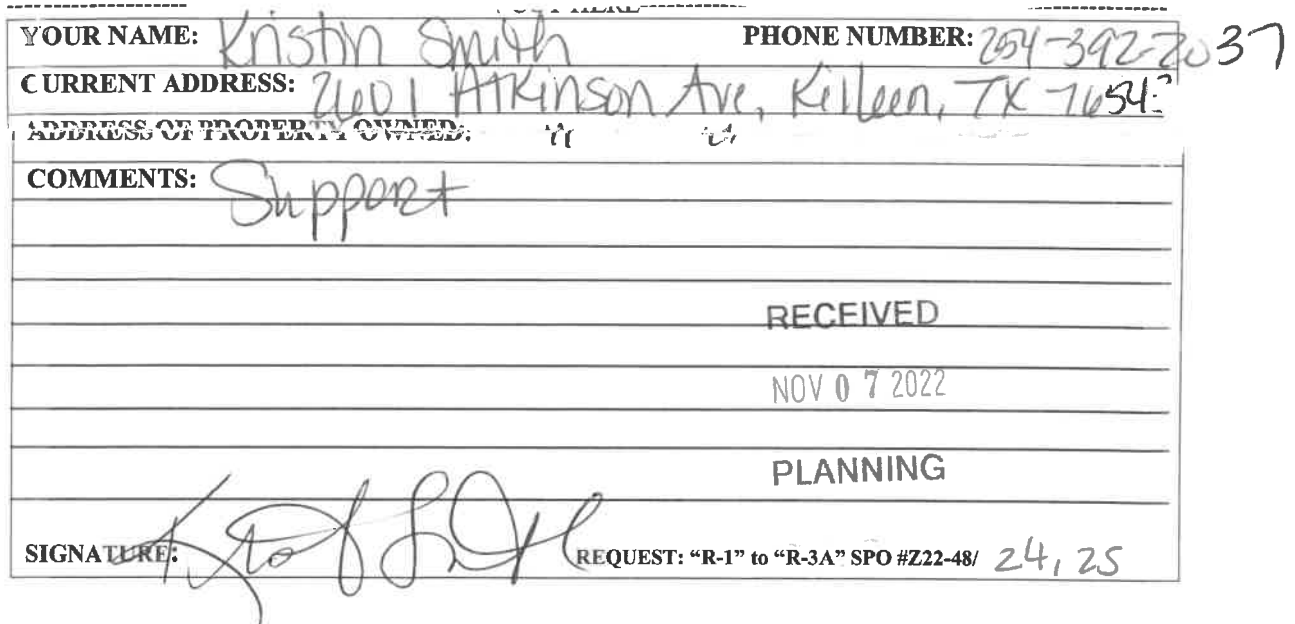 YOUR NAME: Kristin Smith PHONE NUMBER: 254-392-2037
CURRENT ADDRESS: 2601 Atkinson Ave, Killeen, TX 7654
ADDRESS OF PROPERTY OWNED: " "
COMMENTS: Support
RECEIVED
NOV 07 2022
PLANNING
SIGNATURE: REQUEST: "R-1" to "R-3A" SPO #Z22-48/ 24, 25